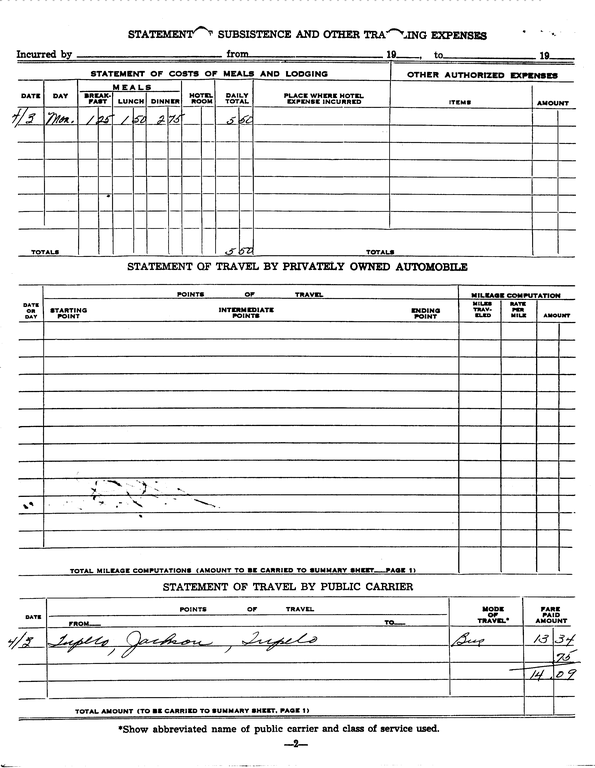 STATEMENT SUBSISTENCE AND OTHER TRA ING EXPENSES
Incurred by from 19 , to 19
STATEMENT OF COSTS OF MEALS AND LODGING OTHER AUTHORIZED EXPENSES
DATE DAY MEALS BREAK-FAST LUNCH DINNER HOTEL ROOM DAILY TOTAL PLACE WHERE HOTEL EXPENSE INCURRED ITEMS AMOUNT
4/3 Mon. 1 25 1 50 2 75 5 50
TOTALS 5 50 TOTALS
STATEMENT OF TRAVEL BY PRIVATELY OWNED AUTOMOBILE
DATE OR DAY POINTS OF TRAVEL MILEAGE COMPUTATION
STARTING POINT INTERMEDIATE POINTS ENDING POINT MILES TRAV-ELED RATE PER MILE AMOUNT
TOTAL MILEAGE COMPUTATIONS (AMOUNT TO BE CARRIED TO SUMMARY SHEET—PAGE 1)
STATEMENT OF TRAVEL BY PUBLIC CARRIER
DATE POINTS OF TRAVEL MODE OF TRAVEL* FARE PAID AMOUNT
FROM— TO—
4/3 Tupelo, Jackson, Tupelo Bus 13 34
75
14.09
TOTAL AMOUNT (TO BE CARRIED TO SUMMARY SHEET, PAGE 1)
*Show abbreviated name of public carrier and class of service used.
—2—